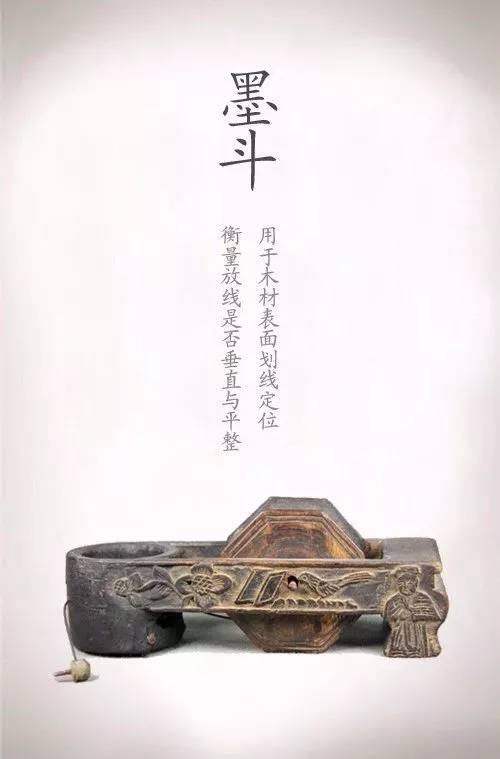 墨斗
用于木材表面划线定位
衡量放线是否垂直与平整